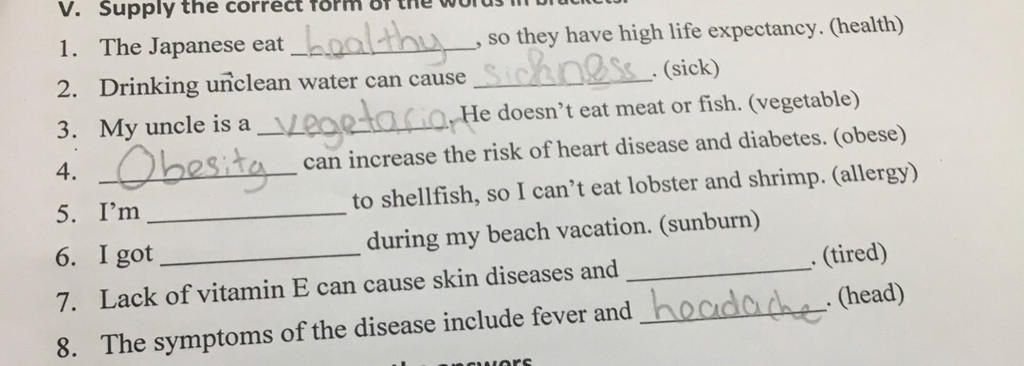 V. Supply the correct form of the words in brackets.
1. The Japanese eat healthy, so they have high life expectancy. (health)
2. Drinking unclean water can cause sickness. (sick)
3. My uncle is a vegetarian. He doesn't eat meat or fish. (vegetable)
4. Obesity can increase the risk of heart disease and diabetes. (obese)
5. I'm ____________ to shellfish, so I can't eat lobster and shrimp. (allergy)
6. I got ____________ during my beach vacation. (sunburn)
7. Lack of vitamin E can cause skin diseases and ____________. (tired)
8. The symptoms of the disease include fever and headache. (head)
the answers